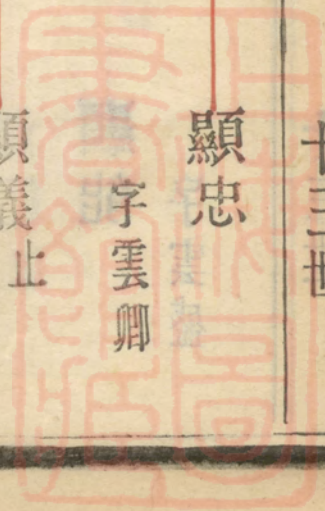 十三世
顯忠
字雲卿
顯義止